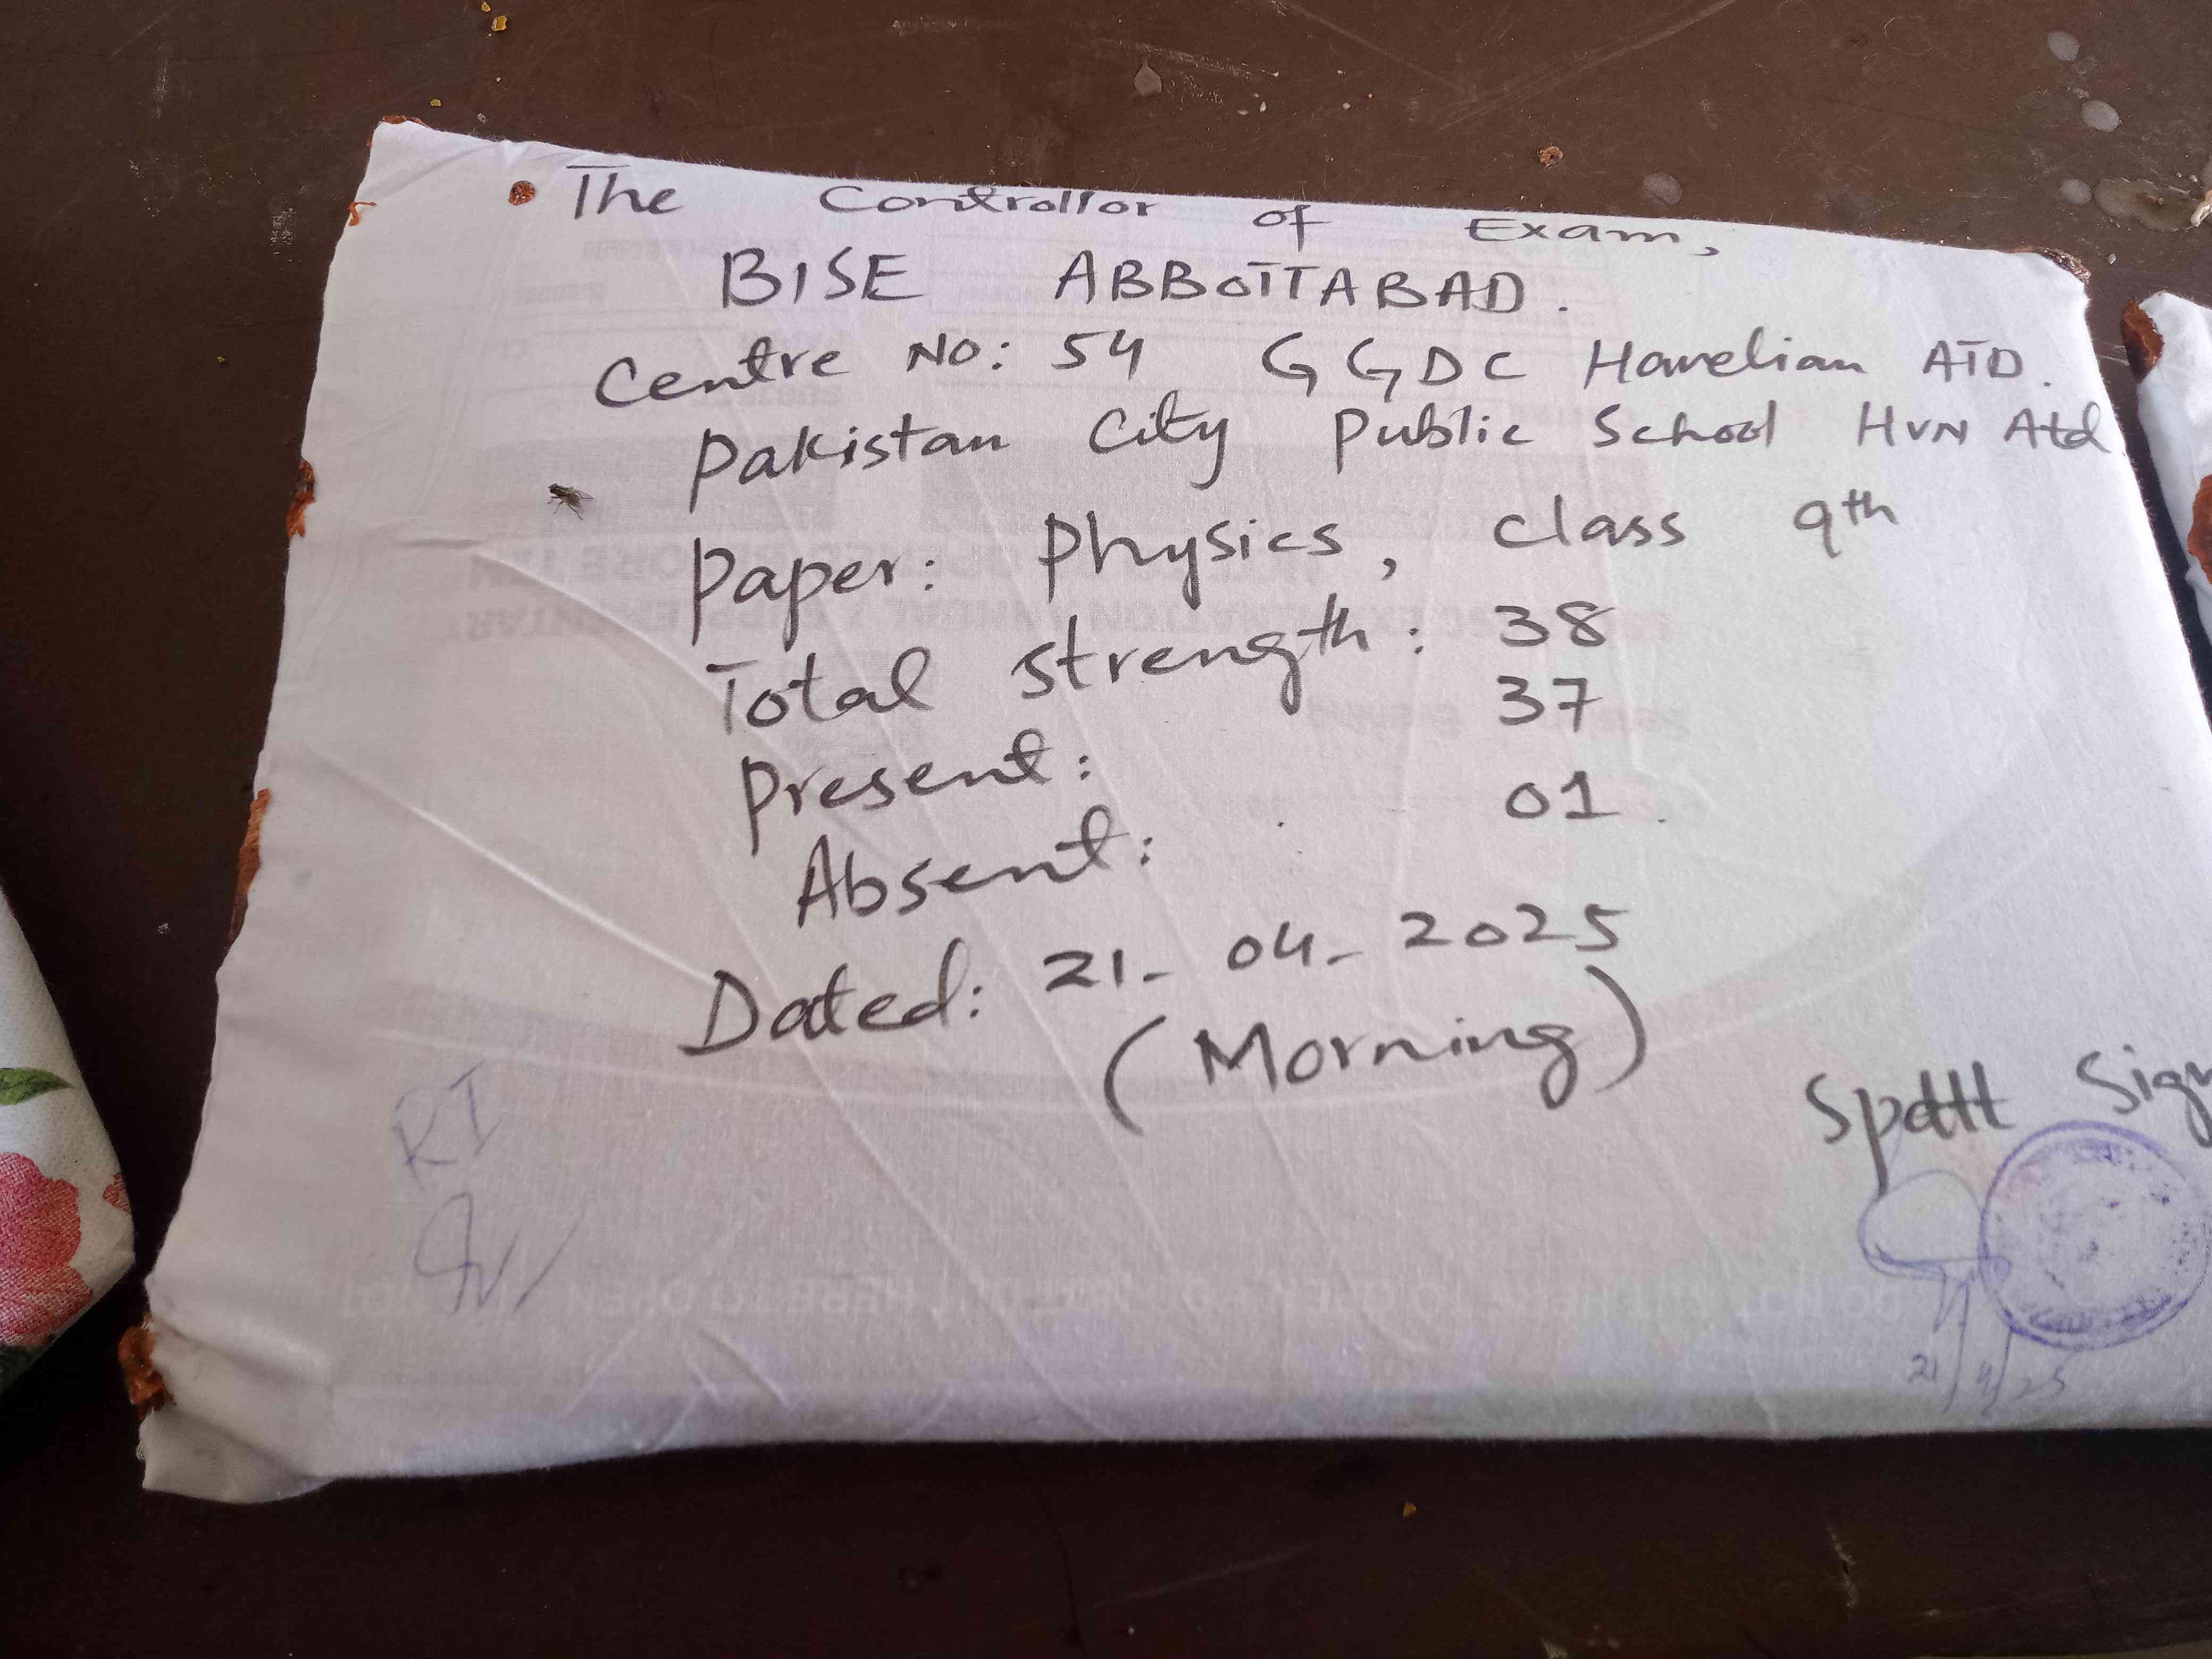 The Controllor of Exam,
BISE ABBOTTABAD.
Centre No: 54 GGDC Havelian ATD.
Pakistan City Public School HVN Atd
Paper: Physics, class 9th
Total strength: 38
Present: 37
Absent: 01
Dated: 21-04-2025
(Morning)
Spdtt Sign
RI
21/4/25